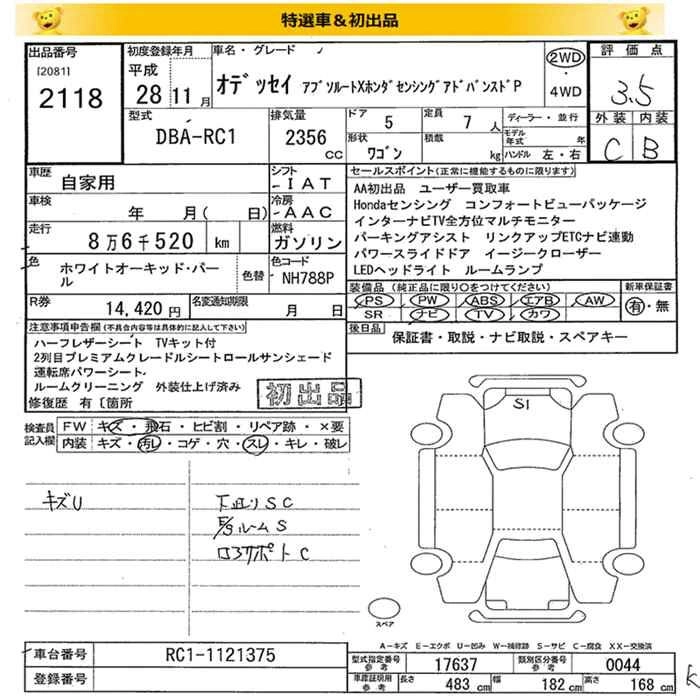 特選車＆初出品
出品番号
[2081]
2118
初度登録年月
平成
28 11月
車名・グレード
オデッセイ アブソルートXホンダセンシングアドバンスドP
2WD
・
4WD
評価点
3.5
外装 内装
C B
型式
DBA-RC1
排気量
2356
cc
ドア 5
定員 7 人
形状 ワゴン
積載 kg
ディーラー・並行
モデル年式 年
ハンドル 左・右
車歴 自家用
シフト -IAT
車検 年 月( 日)
冷房 -AAC
走行 8万6千520 km
燃料 ガソリン
色 ホワイトオーキッド・パール
色替
色コード NH788P
R券 14,420円
名変通知期限 月 日
セールスポイント(正常に機能するものに限ります)
AA初出品 ユーザー買取車
Hondaセンシング コンフォートビューパッケージ
インターナビTV全方位マルチモニター
パーキングアシスト リンクアップETCナビ連動
パワースライドドア イージークローザー
LEDヘッドライト ルームランプ
装備品(純正品に限り○をつけてください)
PS PW ABS エアB AW
SR ナビ TV カワ
新車保証書
有・無
後日品 保証書・取説・ナビ取説・スペアキー
注意事項申告欄(不具合内容等は具体的に記入して下さい)
ハーフレザーシート TVキット付
2列目プレミアムクレードルシートロールサンシェード
運転席パワーシート
ルームクリーニング 外装仕上げ済み
修復歴 有〔箇所
初出品
検査員記入欄
FW キズ・飛石・ヒビ割・リペア跡・×要
内装 キズ・汚レ・コゲ・穴・スレ・キレ・破レ
キズU
下廻りSC
F/Sルーム S
コアサポート C
S1
スペア
A-キズ E-エクボ U-凹み W-補修跡 S-サビ C-腐食 XX-交換済
車台番号 RC1-1121375
登録番号
型式指定番号参考 17637
類別区分番号参考 0044
車庫証明用参考
長さ 483 cm
幅 182 cm
高さ 168 cm